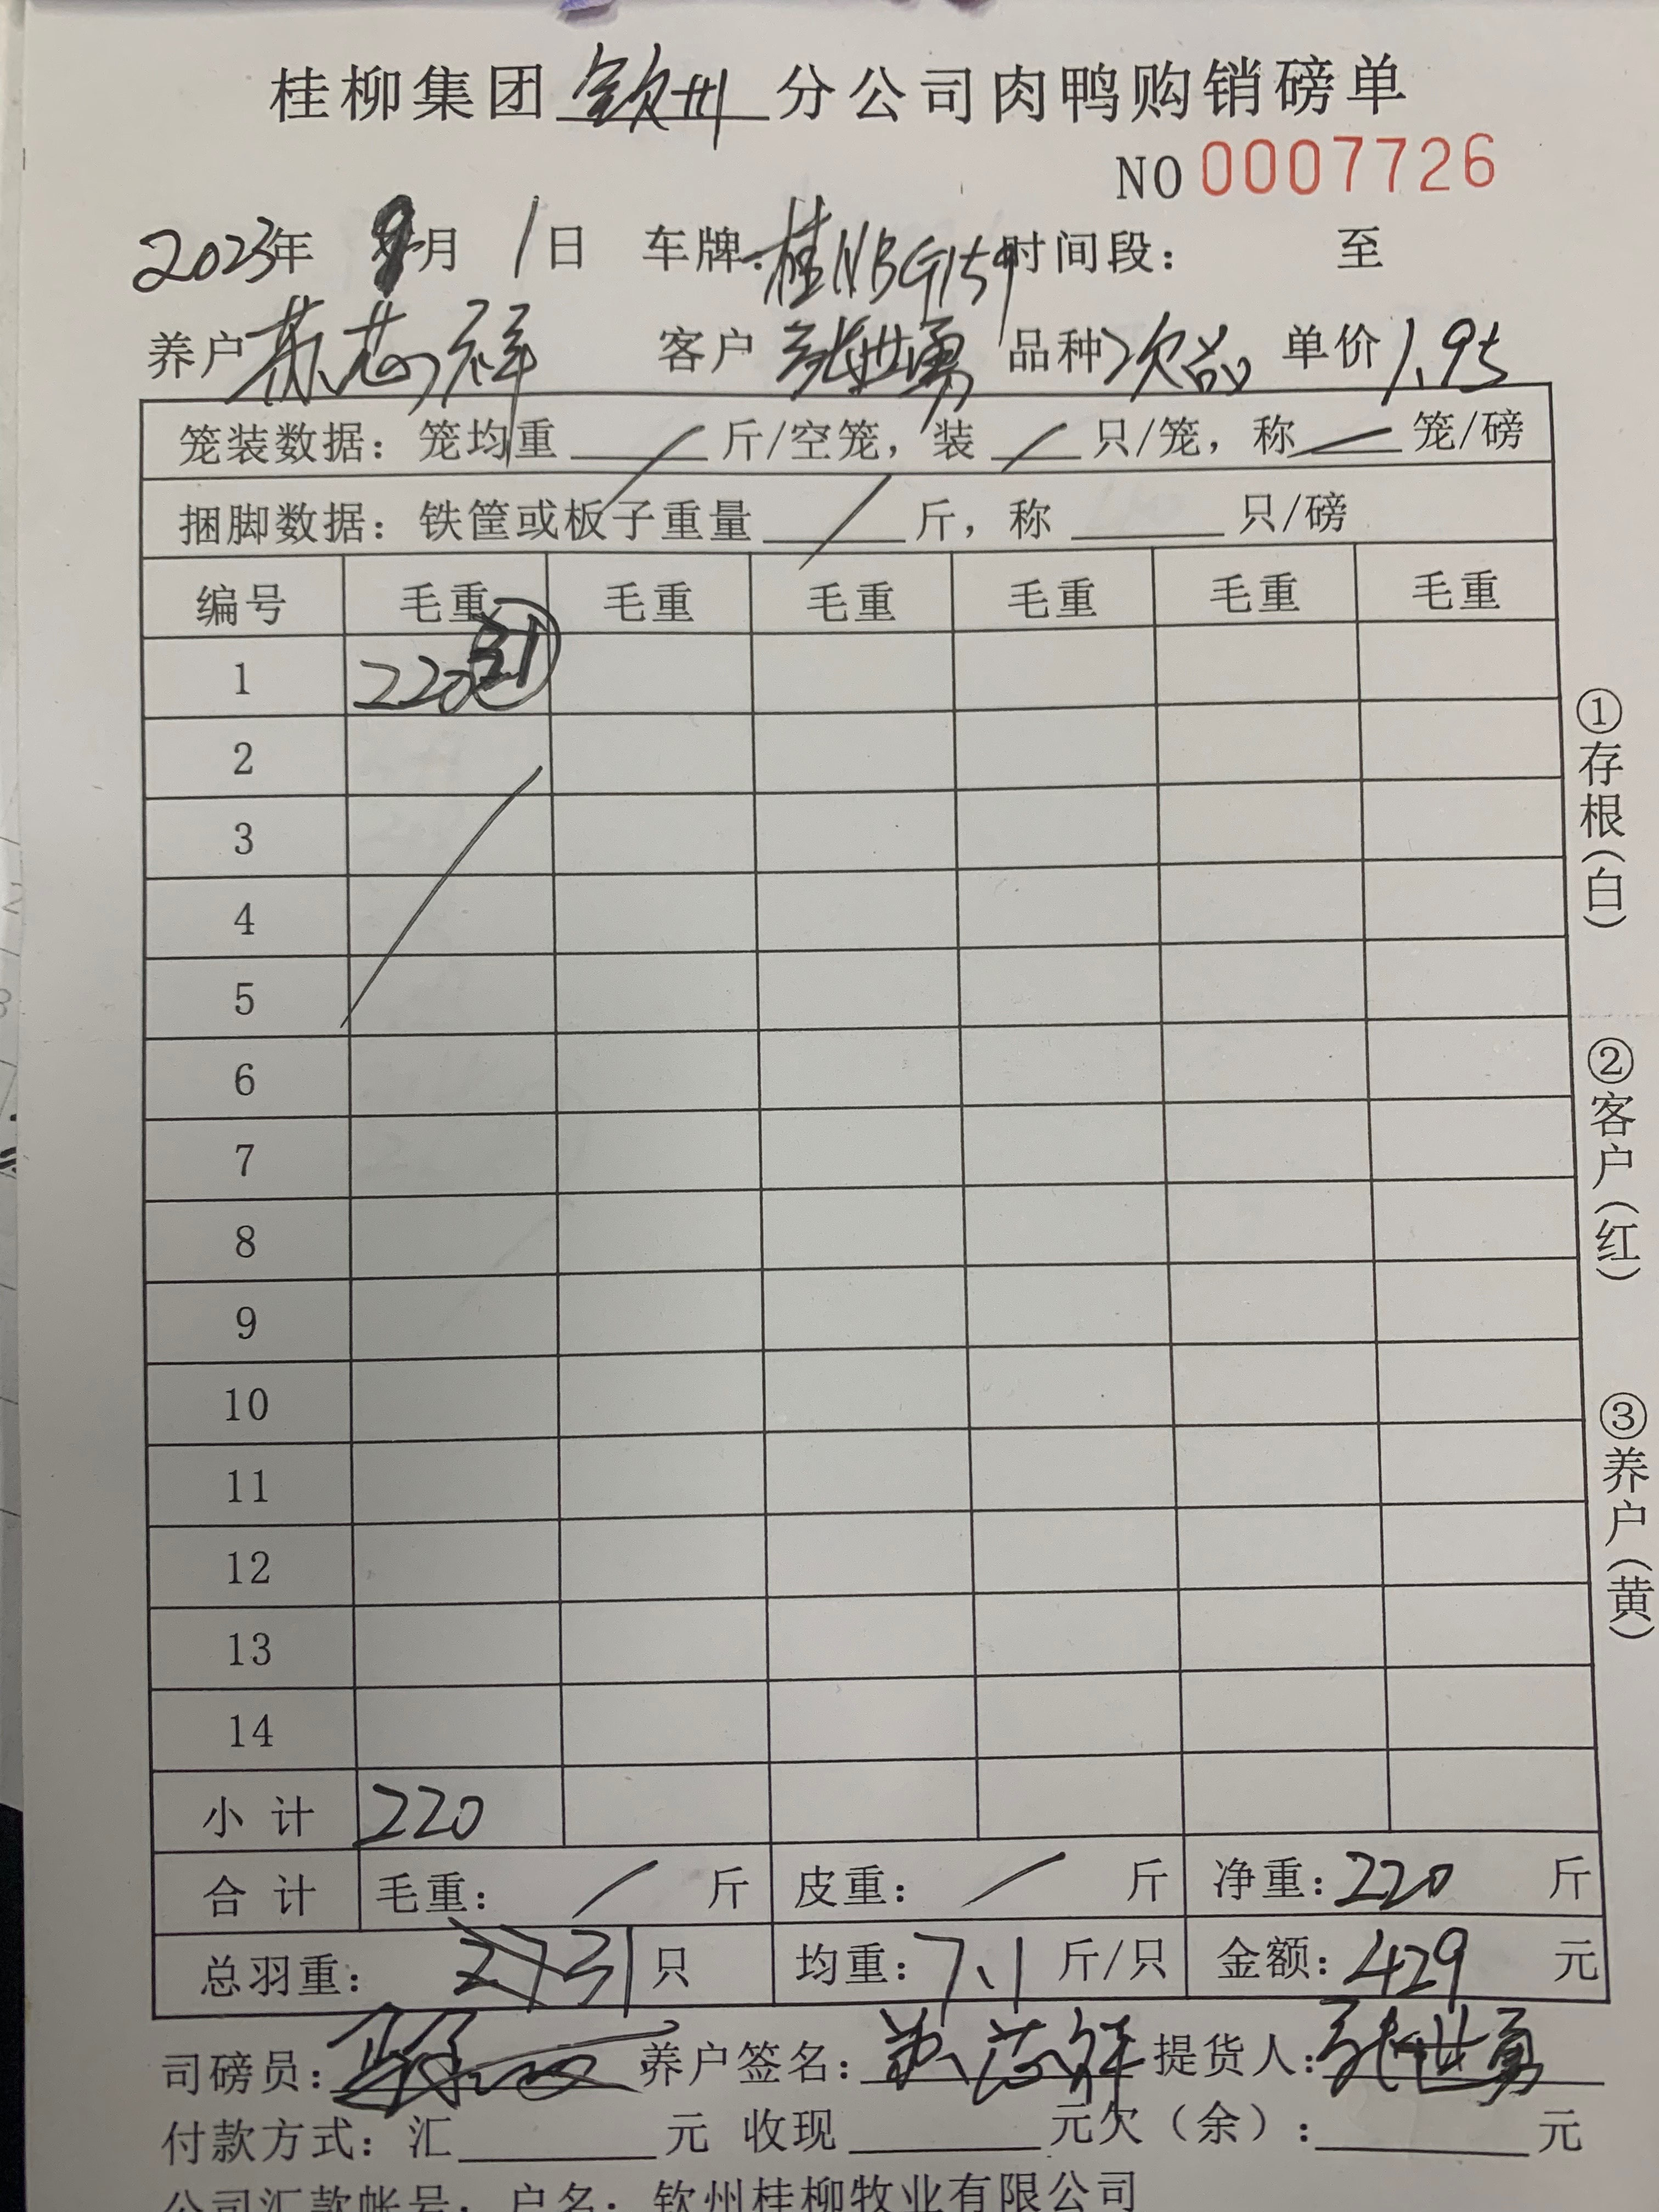 桂柳集团 钦州 分公司肉鸭购销磅单
NO 0007726
2023年 9月 1日 车牌：桂NBG159 时间段： 至
养户 苏芯祥 客户 张世勇 品种 次品 单价 1.95
笼装数据：笼均重 / 斤/空笼，装 / 只/笼，称 / 笼/磅
捆脚数据：铁筐或板子重量 / 斤，称 只/磅
编号 毛重 毛重 毛重 毛重 毛重 毛重
1 220 31
2
3
4
5
6
7
8
9
10
11
12
13
14
小计 220
合计 毛重： / 斤 皮重： / 斤 净重：220 斤
总羽重： 31 只 均重：7.1 斤/只 金额：429 元
司磅员： 养户签名：苏芯祥 提货人：张世勇
付款方式：汇 元 收现 元欠（余）： 元
公司汇款帐号：户名：钦州桂柳牧业有限公司
①存根（白）
②客户（红）
③养户（黄）